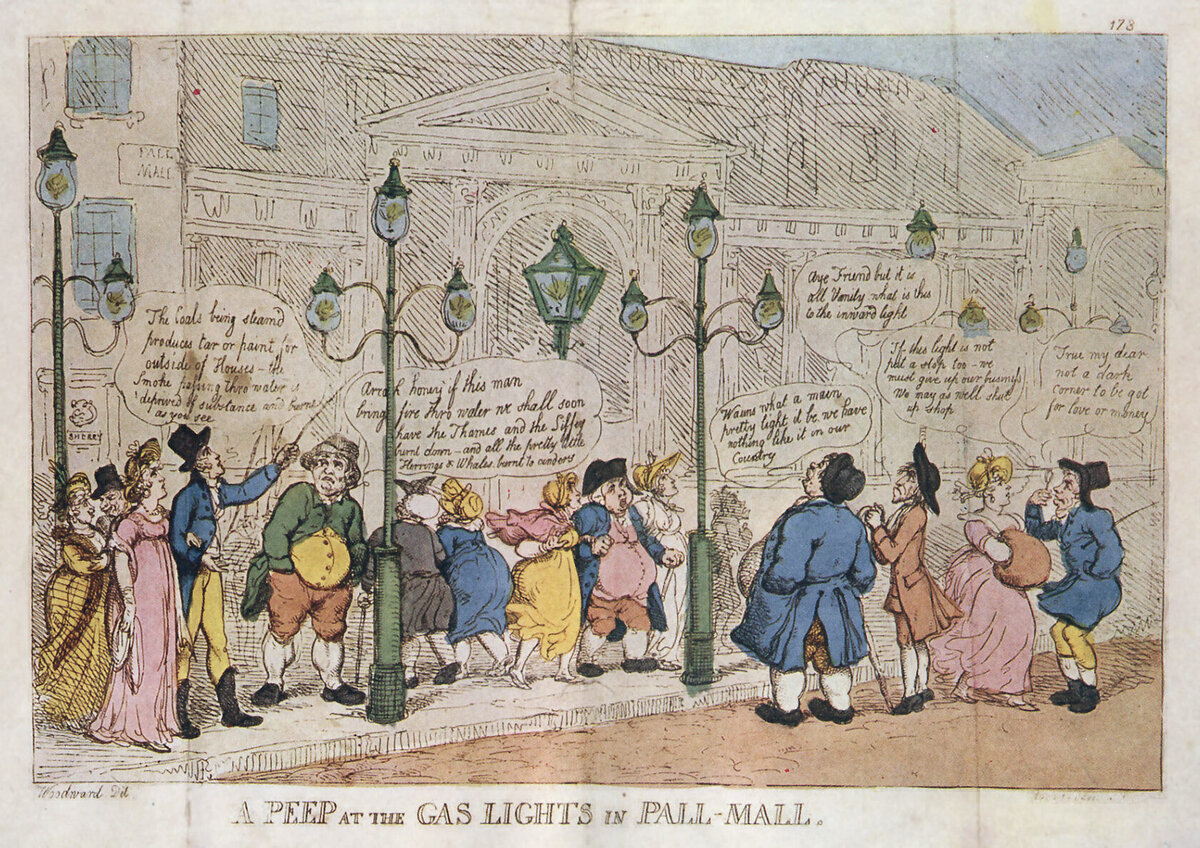 173
PALL
MALL
SHERRY
The Coals being steamd
produces tar or paint for
outside of Houses – the
Smoke passing thro water is
deprived of substance and burns
as you see
Arrah honey if this man
bring fire thro water we shall soon
have the Thames and the Liffey
burnt down – and all the pretty little
Herrings & Whales burnt to cinders
Wauns what a main
pretty light it be we have
nothing like it in our
Country
Aye Friend but it is
all Vanity what is this
to the inward light
If this light is not
put a stop too – we
must give up our business
We may as well shut
up shop
True my dear
not a dark
corner to be got
for love or money
Woodward Del.
A PEEP AT THE GAS LIGHTS IN PALL-MALL.